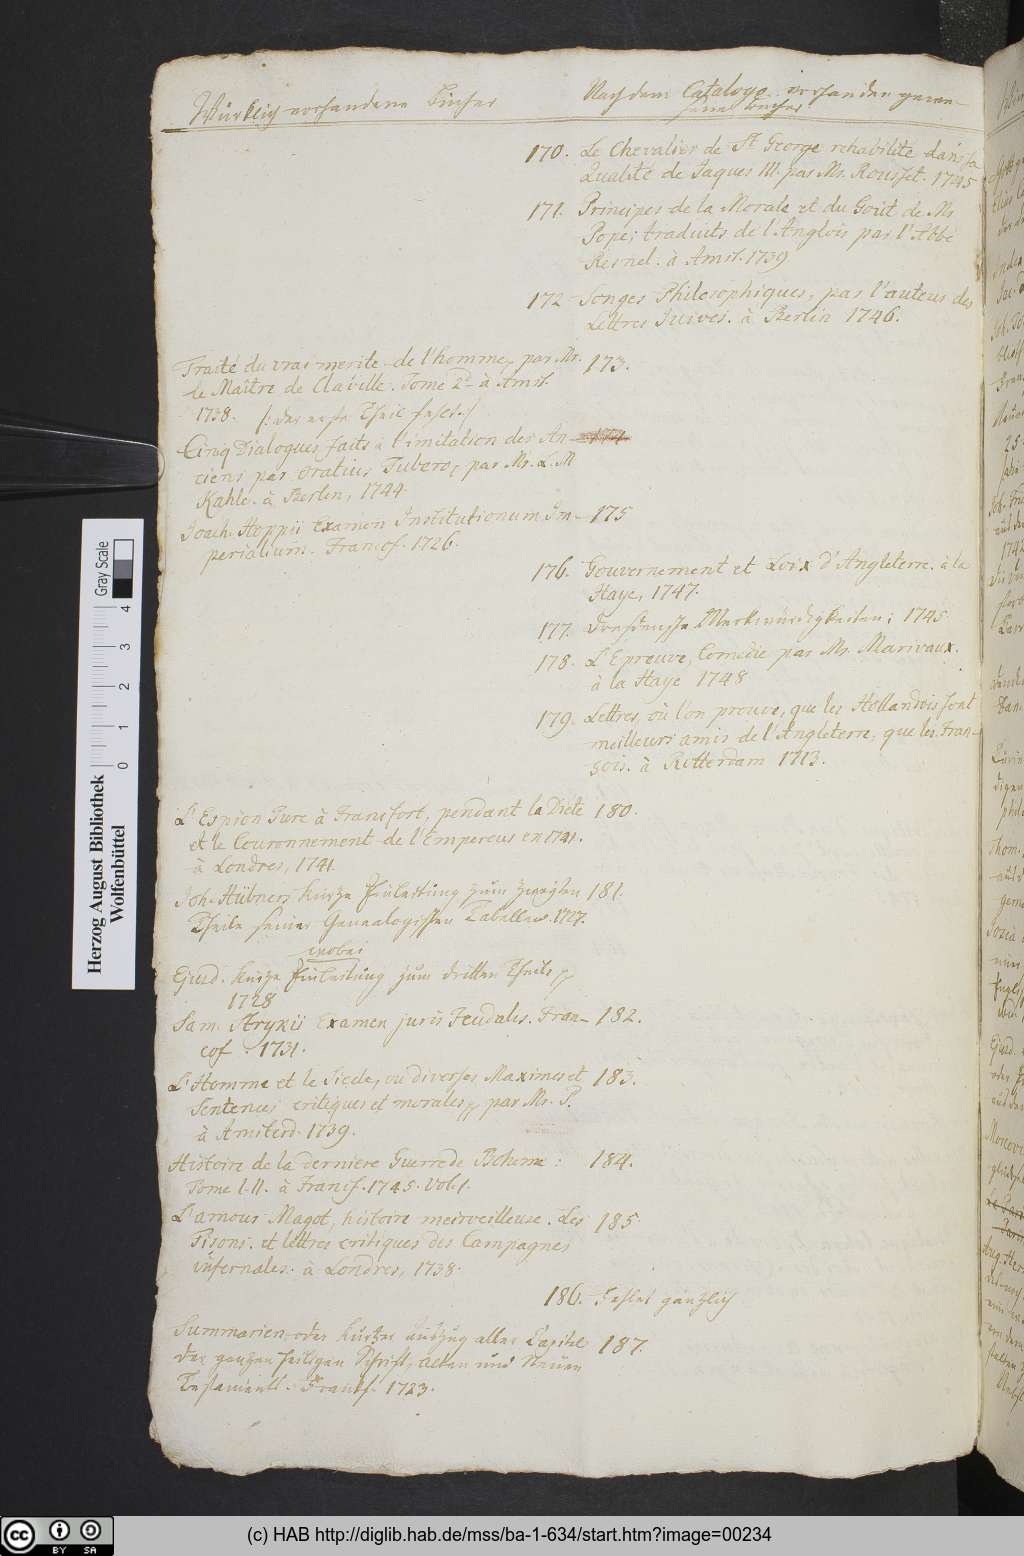 Würklich vorhandene Bücher
Nach dem Catalogo vorhanden gewe-
sene Bücher
170. Le Chevalier de St George rehabilité dans sa
Qualité de Jaques III. par Mr. Rousset. 1745
171. Principes de la Morale et du Goût de Mr
Pope; traduits de l'Anglois par l'Abbé
Resnel. à Amst. 1739
172 Songes Philosophiques, par l'auteur des
Lettres Juives. à Berlin 1746.
Traité du vrai merite de l'homme, par Mr. 173.
le Maître de Claville. Tome 2d à Amst.
1738. /: der erste Theil fehlt :/
Cinq Dialogues faits à l'imitation des An- 174
ciens par Oratius Tubero, par Mr. L. M
Kahle. à Berlin, 1744.
Joach. Hoppii Examen Institutionum Im- 175
perialium. Francof. 1726.
176. Gouvernement et Loix d'Angleterre. à la
Haye, 1747.
177. Dresdensche Merkwürdigkeiten; 1745
178. L'Epreuve, Comedie par Mr. Marivaux.
à la Haye 1748
179. Lettres, où l'on prouve, que les Hollandois sont
meilleurs amis de l'Angleterre, que les Fran-
çois. à Rotterdam 1713.
L'Espion Turc à Francfort, pendant la Diete 180.
et le Couronnement de l'Empereur en 1741.
à Londres, 1741.
Joh. Hübners kurze Einleitung zum zweyten 181.
Theile seiner Genealogischen Tabellen. 1727.
wobei
Ejusd. kurze Einleitung zum dritten Theile
1728
Sam. Strykii Examen juris Feudalis. Fran- 182.
cof. 1731.
L'Homme et le Siecle, ou diverses Maximes et 183.
Sentences critiques et morales, par Mr. P.
à Amsterd. 1739.
Histoire de la derniere Guerre de Boheme: 184.
Tome I. II. à Francf. 1745. Vol. 1.
L'amour Magot, histoire merveilleuse. Les 185
Tisons. et lettres critiques des Campagnes
infernales. à Londres, 1738.
186. Fehlet gänzlich
Summarien oder kurzer Auszug aller Capitel 187.
der ganzen heiligen Schrift, Alten und Neuen
Testaments. Franckf. 1723.
Herzog August Bibliothek
Wolfenbüttel
0 1 2 3 4
Gray Scale
cc BY SA
(c) HAB http://diglib.hab.de/mss/ba-1-634/start.htm?image=00234